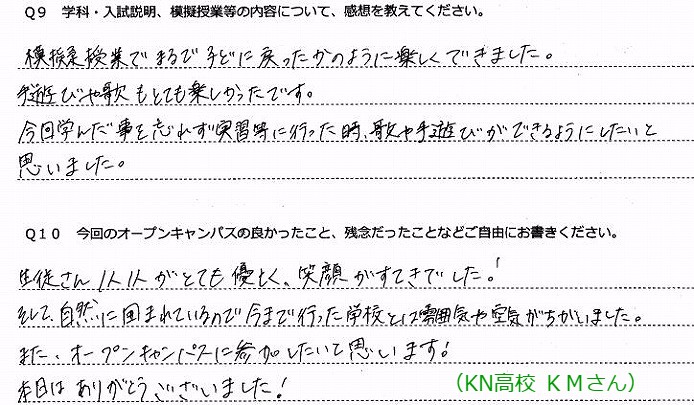 Q9 学科・入試説明、模擬授業等の内容について、感想を教えてください。
模擬授業でまるで子どに戻ったかのように楽しくできました。
手遊びや歌もとても楽しかったです。
今回学んだ事を忘れず実習等に行った時、歌や手遊びができるようにしたいと
思いました。
Q10 今回のオープンキャンパスの良かったこと、残念だったことなどご自由にお書きください。
生徒さん1人1人がとても優しく、笑顔がすてきでした!
そして、自然に囲まれているので今まで行った学校とは雰囲気や空気がちがいました。
また、オープンキャンパスに参加したいて思います!
本日はありがとうございました!
(KN高校 KMさん)